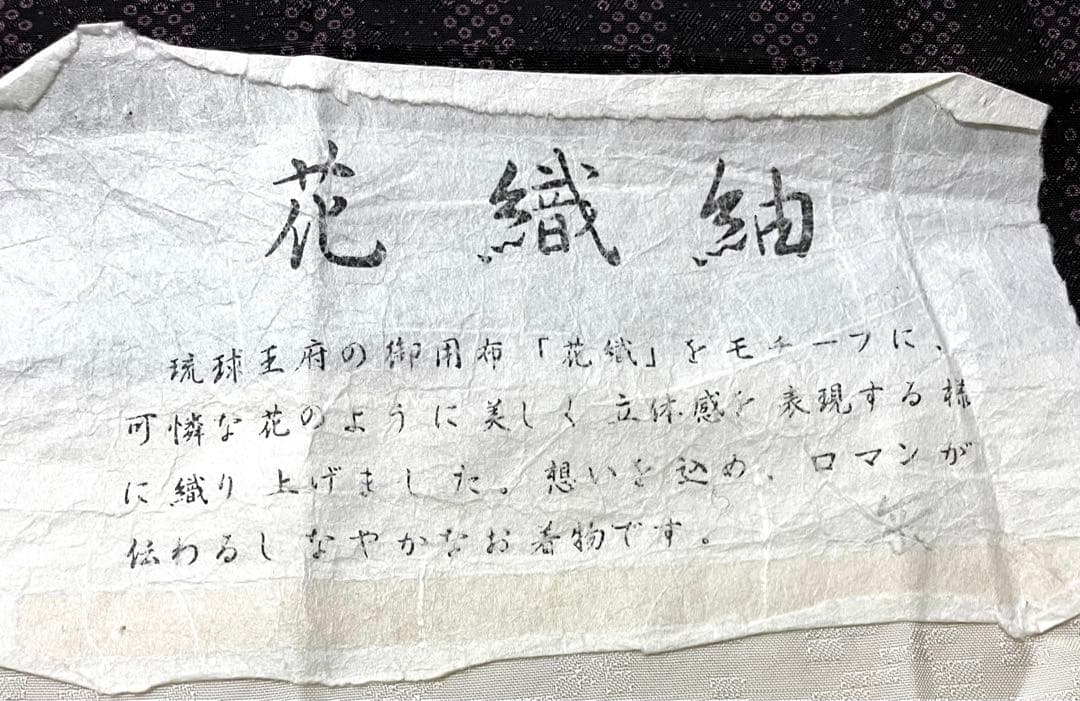 花織紬
琉球王府の御用布「花織」をモチーフに、
可憐な花のように美しく立体感を表現する様
に織り上げました。想いを込め、ロマンが
伝わるしなやかなお着物です。